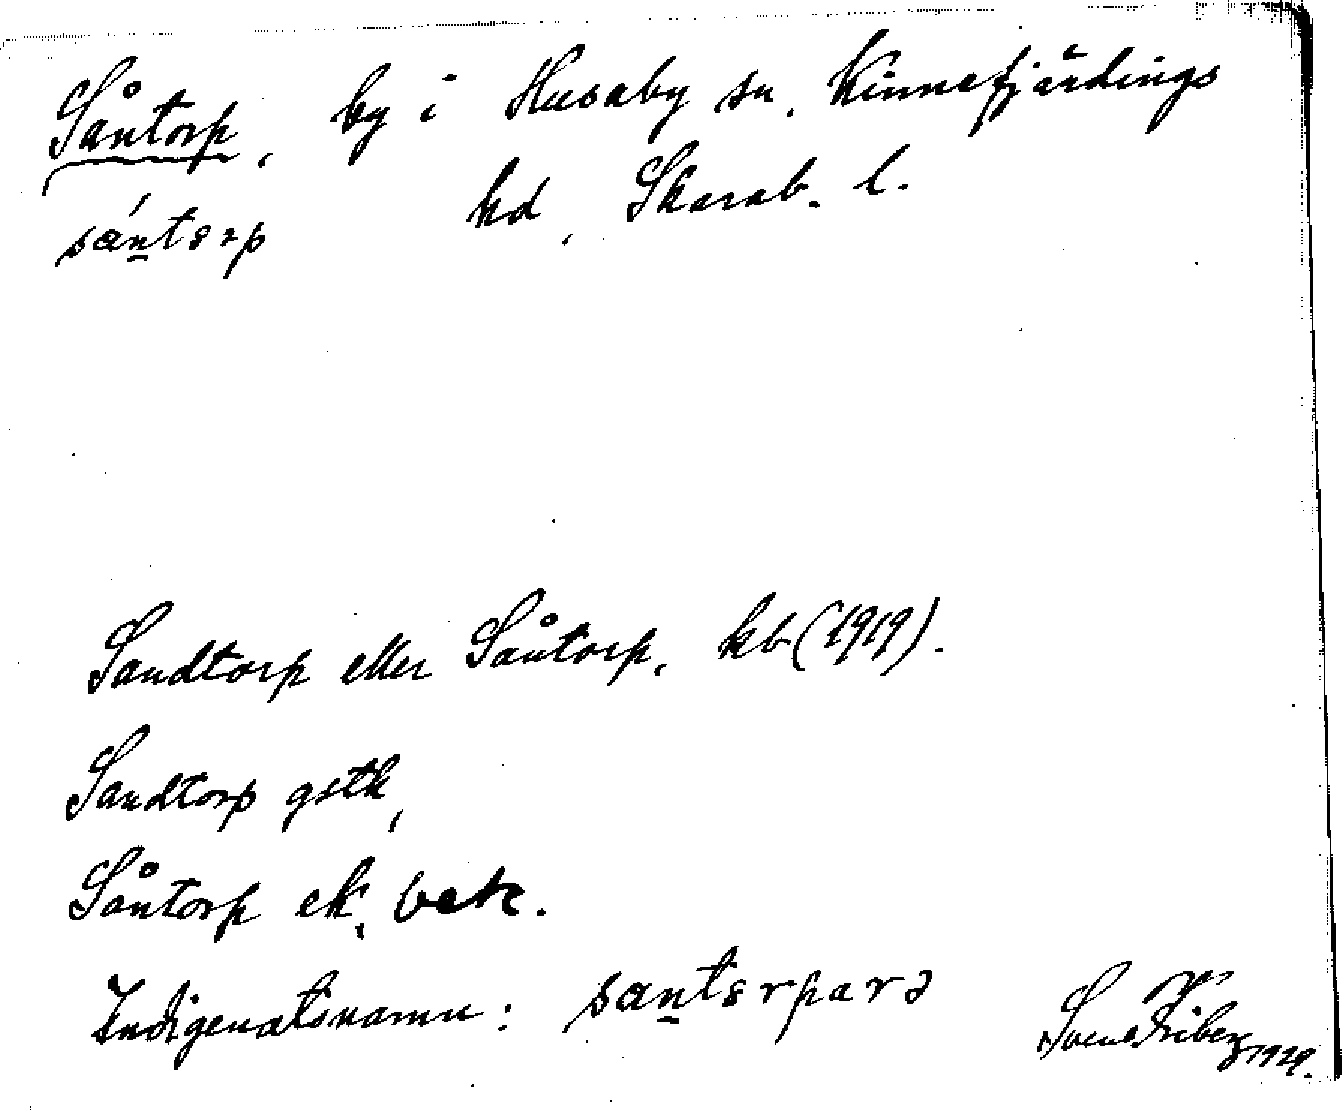 Såntorp, by i Husaby sn, Kinnefjärdings
sántɛrp hd, Skarab. l.
Sandtorp eller Såntorp, kb (1919).
Sandtorp gstk,
Såntorp ek, vetk.
Indigenatsnamn: santɛrparə
Sven Friberg 1929.